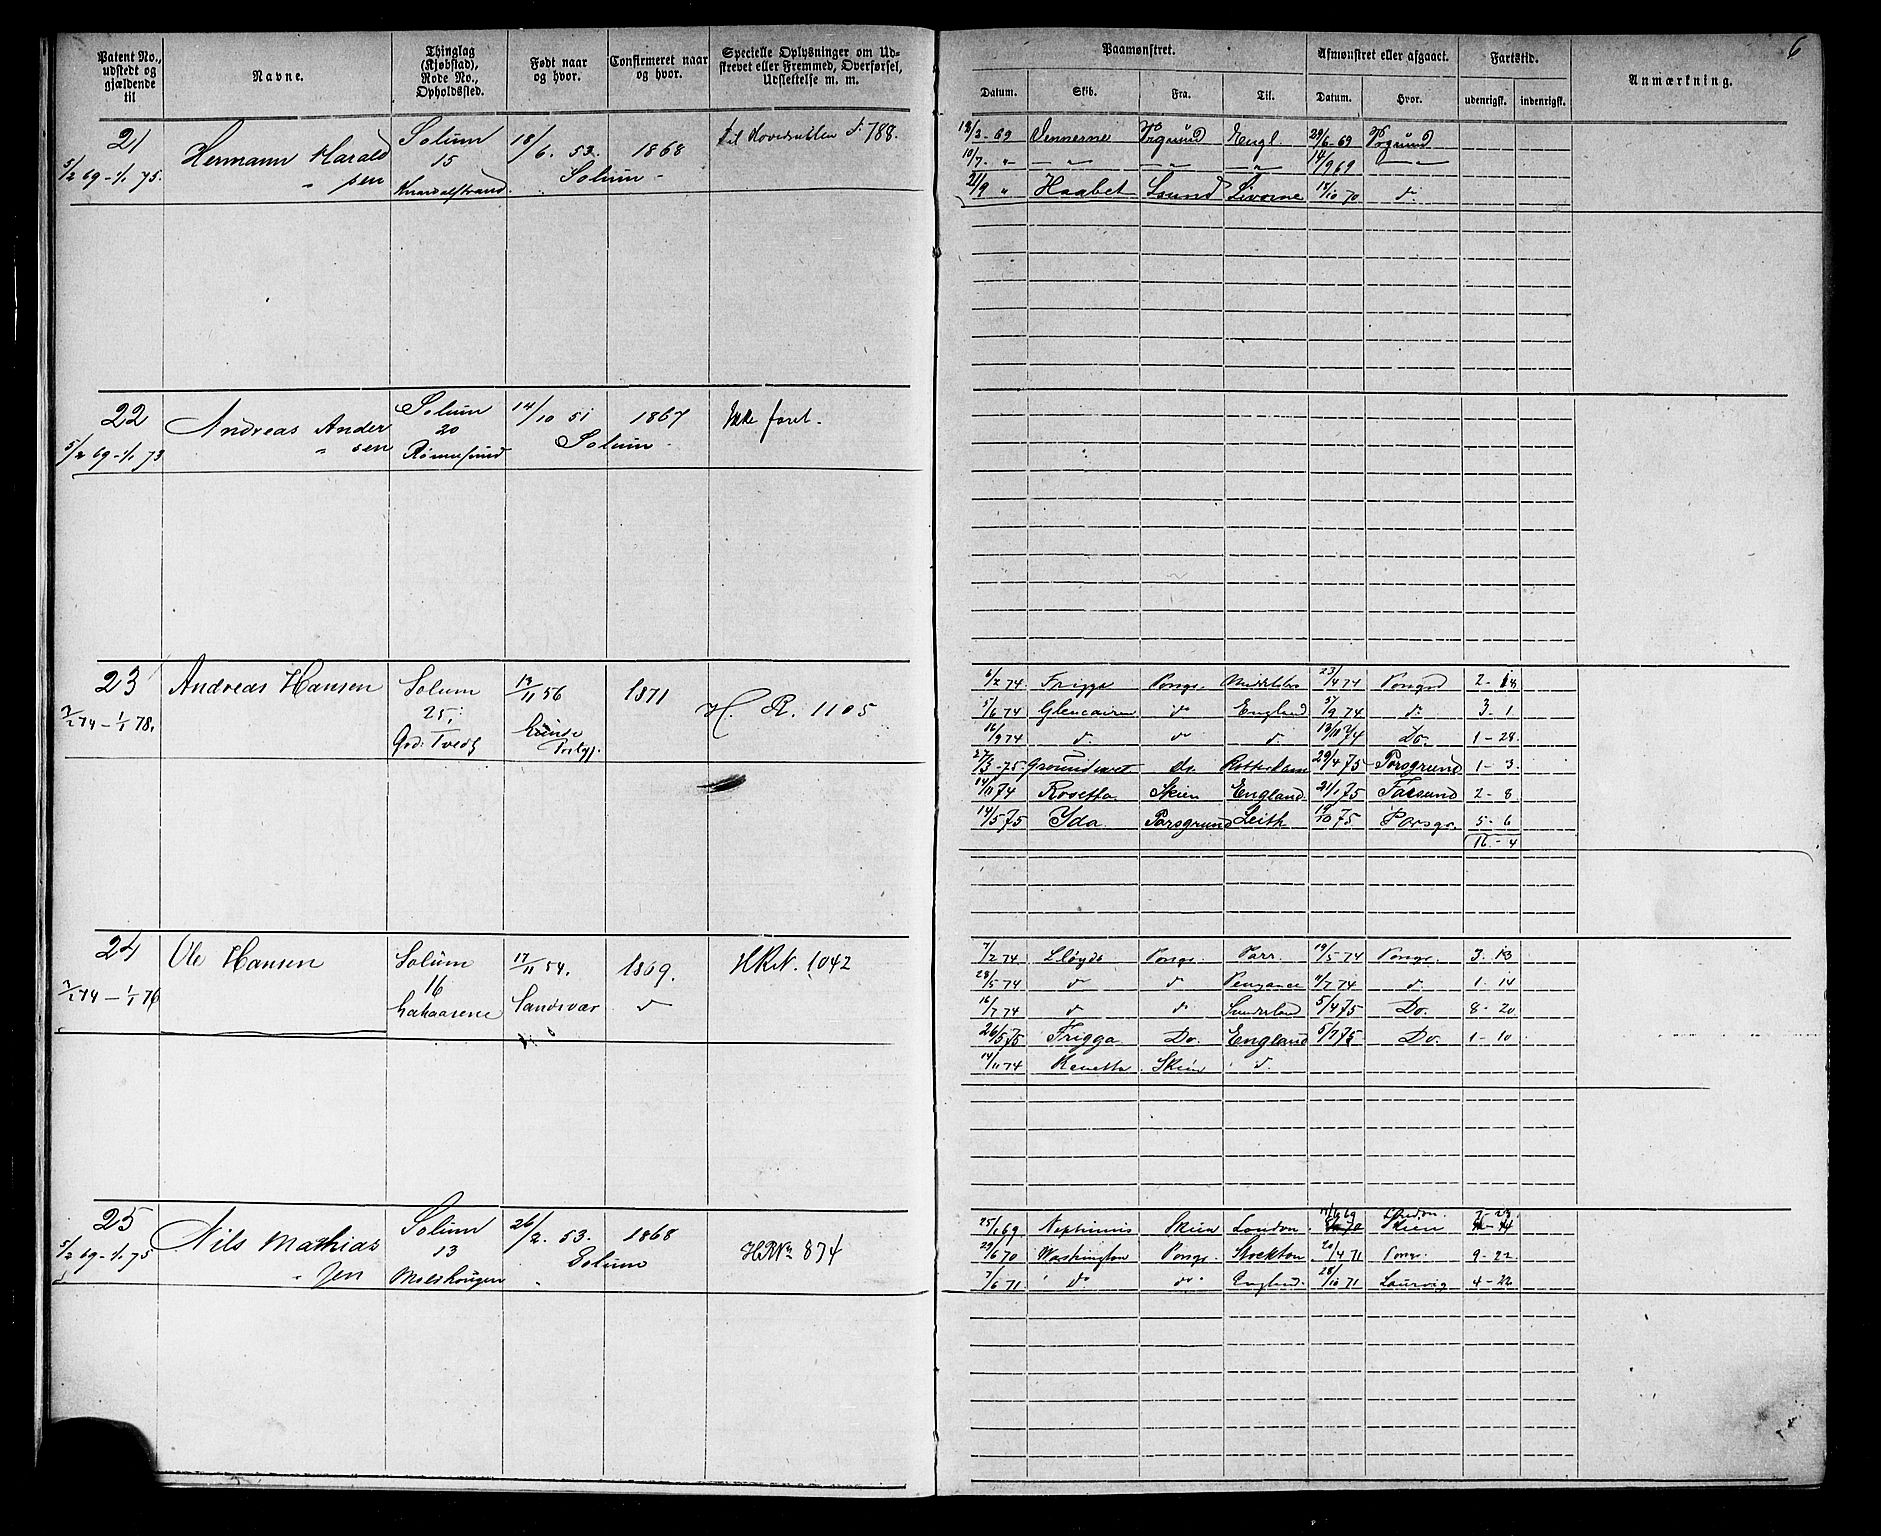 Patent No., udstedt og gjældende til
Navne.
Thinglag (Kjøbstad), Rode No., Opholdssted.
Født naar og hvor.
Confirmeret naar og hvor.
Specielle Oplysninger om Udskrevet eller Fremmed, Overførsel, Udslettelse m. m.
Paamønstret.
Afmønstret eller afgaaet.
Fartstid.
Anmærkning.
6
Datum. Skib. Fra. Til. Datum. Hvor. udenrigsk. indenrigsk.
21 Hermann Harald Solum 18/6. 53. 1868 Til Hovedrullen No 788.
5/2 69-1/1 75. " sen 15 Solum -
Knardalstrand.
18/2-69 Sennerne Prgrund Engl. 29/6-69 Prgrund
10/7. " — " — — " — — " — 14/9 69 — " —
21/9 " Haabet Lsund Livorne 18/10 70 do
22 Andreas Ander Solum 14/10 51 1867 Ikke faret.
5/2 69-1/1 73 " sen 20 Solum -
23 Andreas Hansen Solum 13/11 56 1871 H. R. 1105
2/2 74 - 1/1 78. 25
6/2 74 Frigga Porsgr. 23/4 74 Porsgrd 2-18
5/6 74 Glencairn do England 5/9 74 do 3-1
12/9 74 do do do 10/11 74 Do. 1-28
27/3-75. Do. Rotterdam 29/4 75 Porsgrund 1-3
14/11 74 Rosetta Skien England 21/1 75 Farsund 2-8
14/5 75 Ida Porsgrund Leith 19/10 75 Porsgr. 5-6
16-4
24 Ole Hansen Solum 17/11 54. 1869. H.R.N. 1042
2/2 74 - 1/1 76 16 Sandsvær do
7/2 74 Lloyds Porsgr. Parr. 19/5 74 Porsgr. 3-13
28/5 74 do do Penzance 11/7 74 do 1-14
16/7 74 do do Sunderland 5/4 75 Do. 8-20
26/5 75 Frigga Do. England 5/7 75 Do. 1-10
14/11 74 Skien do
25 Nils Mathias Solum 26/2. 53. 1868 H.R.No 874
5/2 69-1/1 75 " sen 13 Solum
25/1 69 Neptunus Skien London Skien
29/6 70 Washington Porsgr. Stockton 20/4 71 Porsgr. 9-22
7/6 71 do do England. 28/10 71 Laurvig 4-22